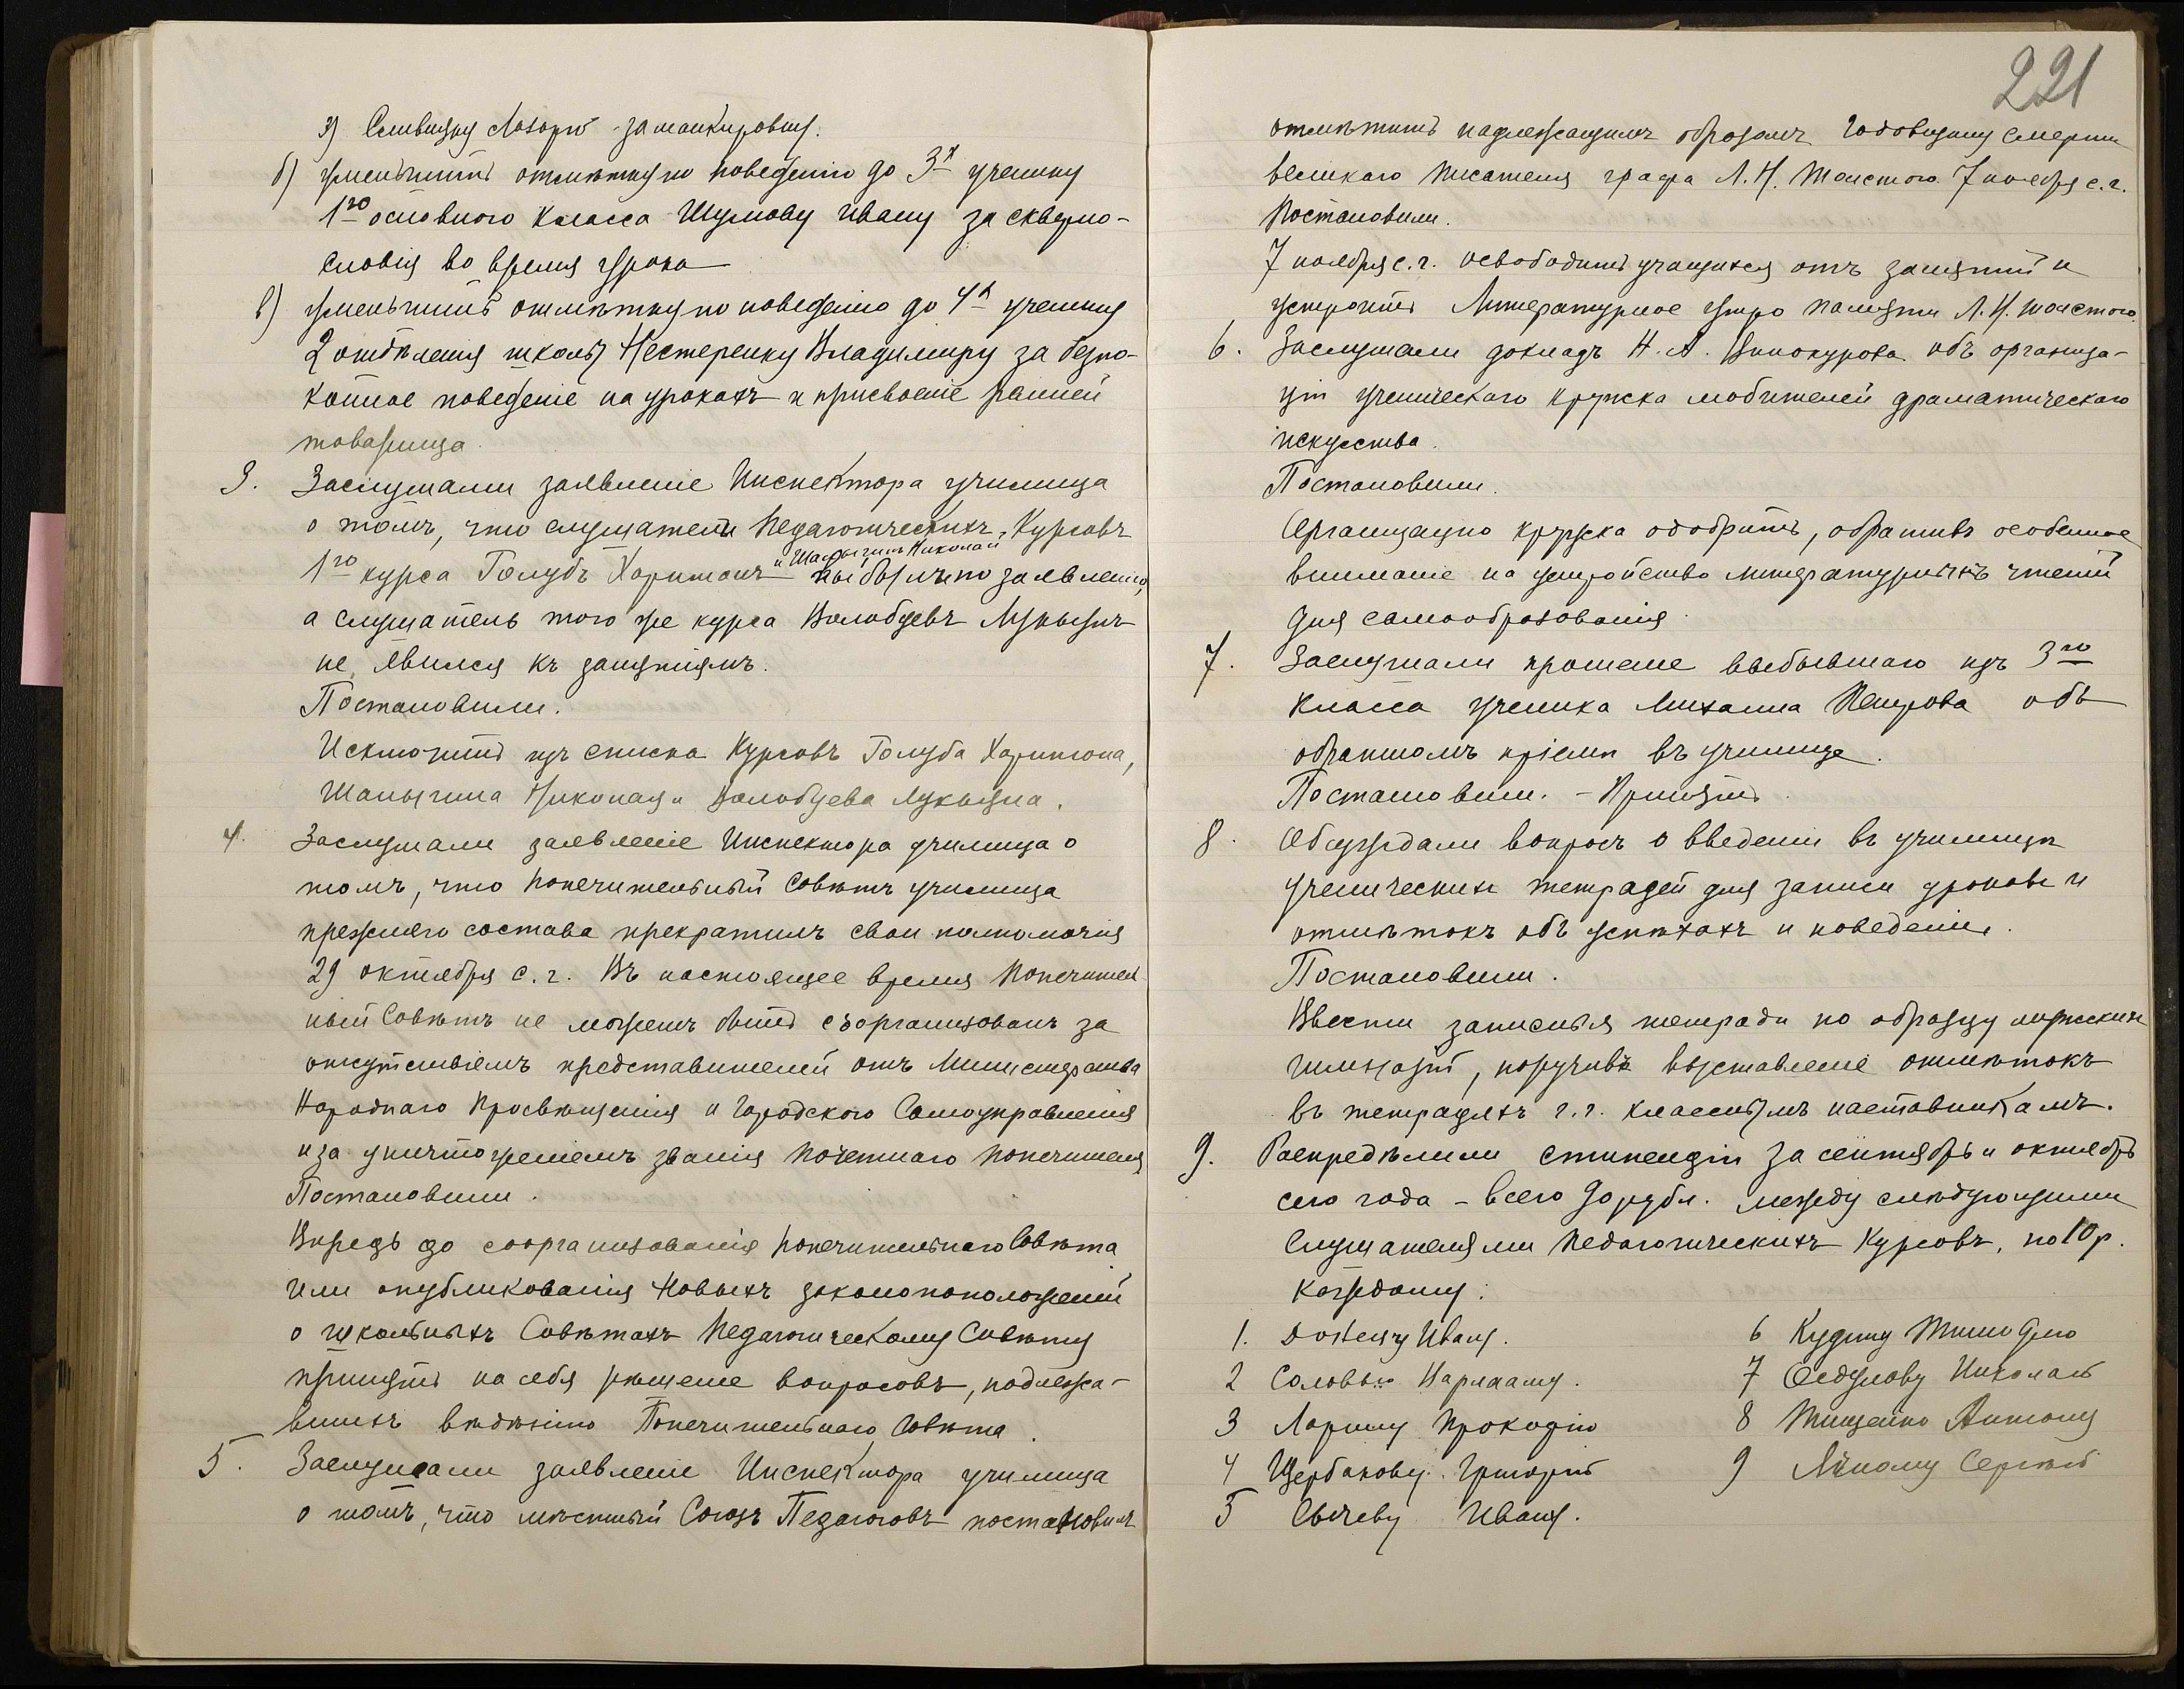 3) Сливицку Лазарю - за манкировку.
б) уменьшить отмѣтку по поведенію до 3х ученику
1го основного класса Шумову Ивану за скверно-
словія во время урока
в) уменьшить отмѣтку по поведенію до 4х ученику
2 отдѣленія школы Нестеренку Владимиру за безпо-
койное поведеніе на урокахъ и присвоеніе
товарища.
3. Заслушали заявленіе Инспектора училища
о томъ, что слушатели Педагогическихъ Курсовъ
и Шапыгинъ Николай
1го курса Голубъ Харитонъ выбыли по заявленію,
а слушатель того же курса Волобуевъ Лукьянъ
не явился къ занятіямъ.
Постановили.
Исключить изъ списка Курсовъ Голуба Харитона,
Шапыгина Николая и Волобуева Лукьяна.
4. Заслушали заявленіе Инспектора училища о
томъ, что Попечительный Совѣтъ училища
прежняго состава прекратилъ свои полномочія
29 октября с.г. Въ настоящее время Попечитель
ный Совѣтъ не можетъ быть съорганизованъ за
отсутствіемъ представителей отъ Министерства
Народнаго Просвѣщенія и Городского Самоуправленія
и за уничтоженіемъ званія Почетнаго Попечителя
Постановили.
Впредь до соорганизованія Попечительнаго Совѣта
или опубликованія новыхъ законоположеній
о школьныхъ Совѣтахъ Педагогическому Совѣту
принять на себя рѣшеніе вопросовъ, подлежа-
вшихъ вѣдѣнію Попечительнаго Совѣта.
5. Заслушали заявленіе Инспектора училища
о томъ, что мѣстный Союзъ Педагоговъ постановилъ
221
отмѣтить надлежащимъ образомъ годовщину смерти
великаго писателя графа Л. Н. Толстого 7 ноября с.г.
Постановили.
7 ноября с.г. освободить учащихся отъ занятій и
устроить Литературное утро памяти Л. Н. Толстого.
6. Заслушали докладъ Н. А. Винокурова объ организа-
ціи ученическаго кружка любителей драматическаго
искусства.
Постановили.
Организацію кружка одобрить, обративъ особенное
вниманіе на устройство литературныхъ чтеній
для самообразованія.
7. Заслушали прошеніе выбывшаго изъ 3го
класса ученика Михаила Петрова объ
обратномъ пріемѣ въ училище.
Постановили. - Принять.
8. Обсуждали вопросъ о введеніи въ училищѣ
ученическихъ тетрадей для записи уроковъ и
отмѣтокъ объ успѣхахъ и поведеніи.
Постановили.
Ввести записныя тетради по образцу мужскихъ
гимназій, поручивъ выставленіе отмѣтокъ
въ тетрадяхъ г.г. класснымъ наставникамъ.
9. Распредѣлили стипендіи за сентябрь и октябрь
сего года - всего 90 рубл. между слѣдующими
слушателями Педагогическихъ Курсовъ, по 10 р.
каждому:
1. Ивану.
2
3 Ларину Прокофію
4 Щербакову Григорію
5 Сычеву Ивану.
6
7 Николаю
8 Тищенко Антону
9 Сергѣю